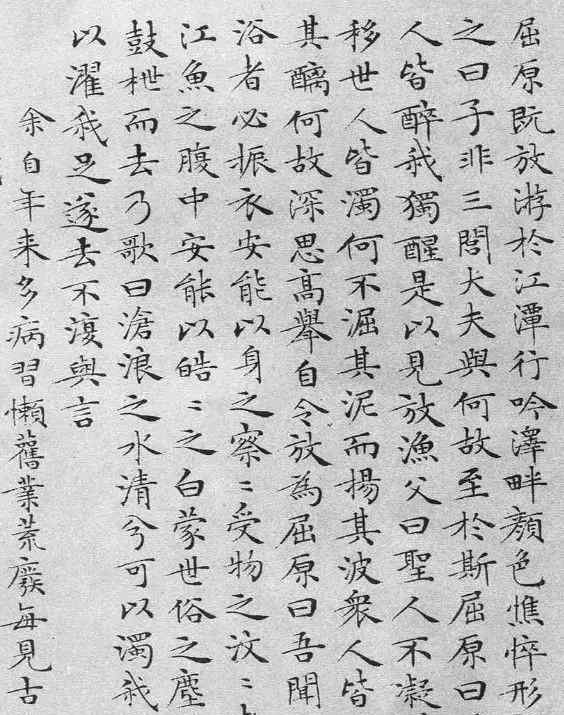 屈原既放游於江潭行吟澤畔顏色憔悴形
之曰子非三閭大夫與何故至於斯屈原曰
人皆醉我獨醒是以見放漁父曰聖人不凝
移世人皆濁何不淈其泥而揚其波衆人皆
其醨何故深思高舉自令放為屈原曰吾聞
浴者必振衣安能以身之察〻受物之汶〻
江魚之腹中安能以皓〻之白蒙世俗之塵
鼓枻而去乃歌曰滄浪之水清兮可以濁我
以濯我足遂去不復與言
余自年来多病習懶舊業荒廢每見古